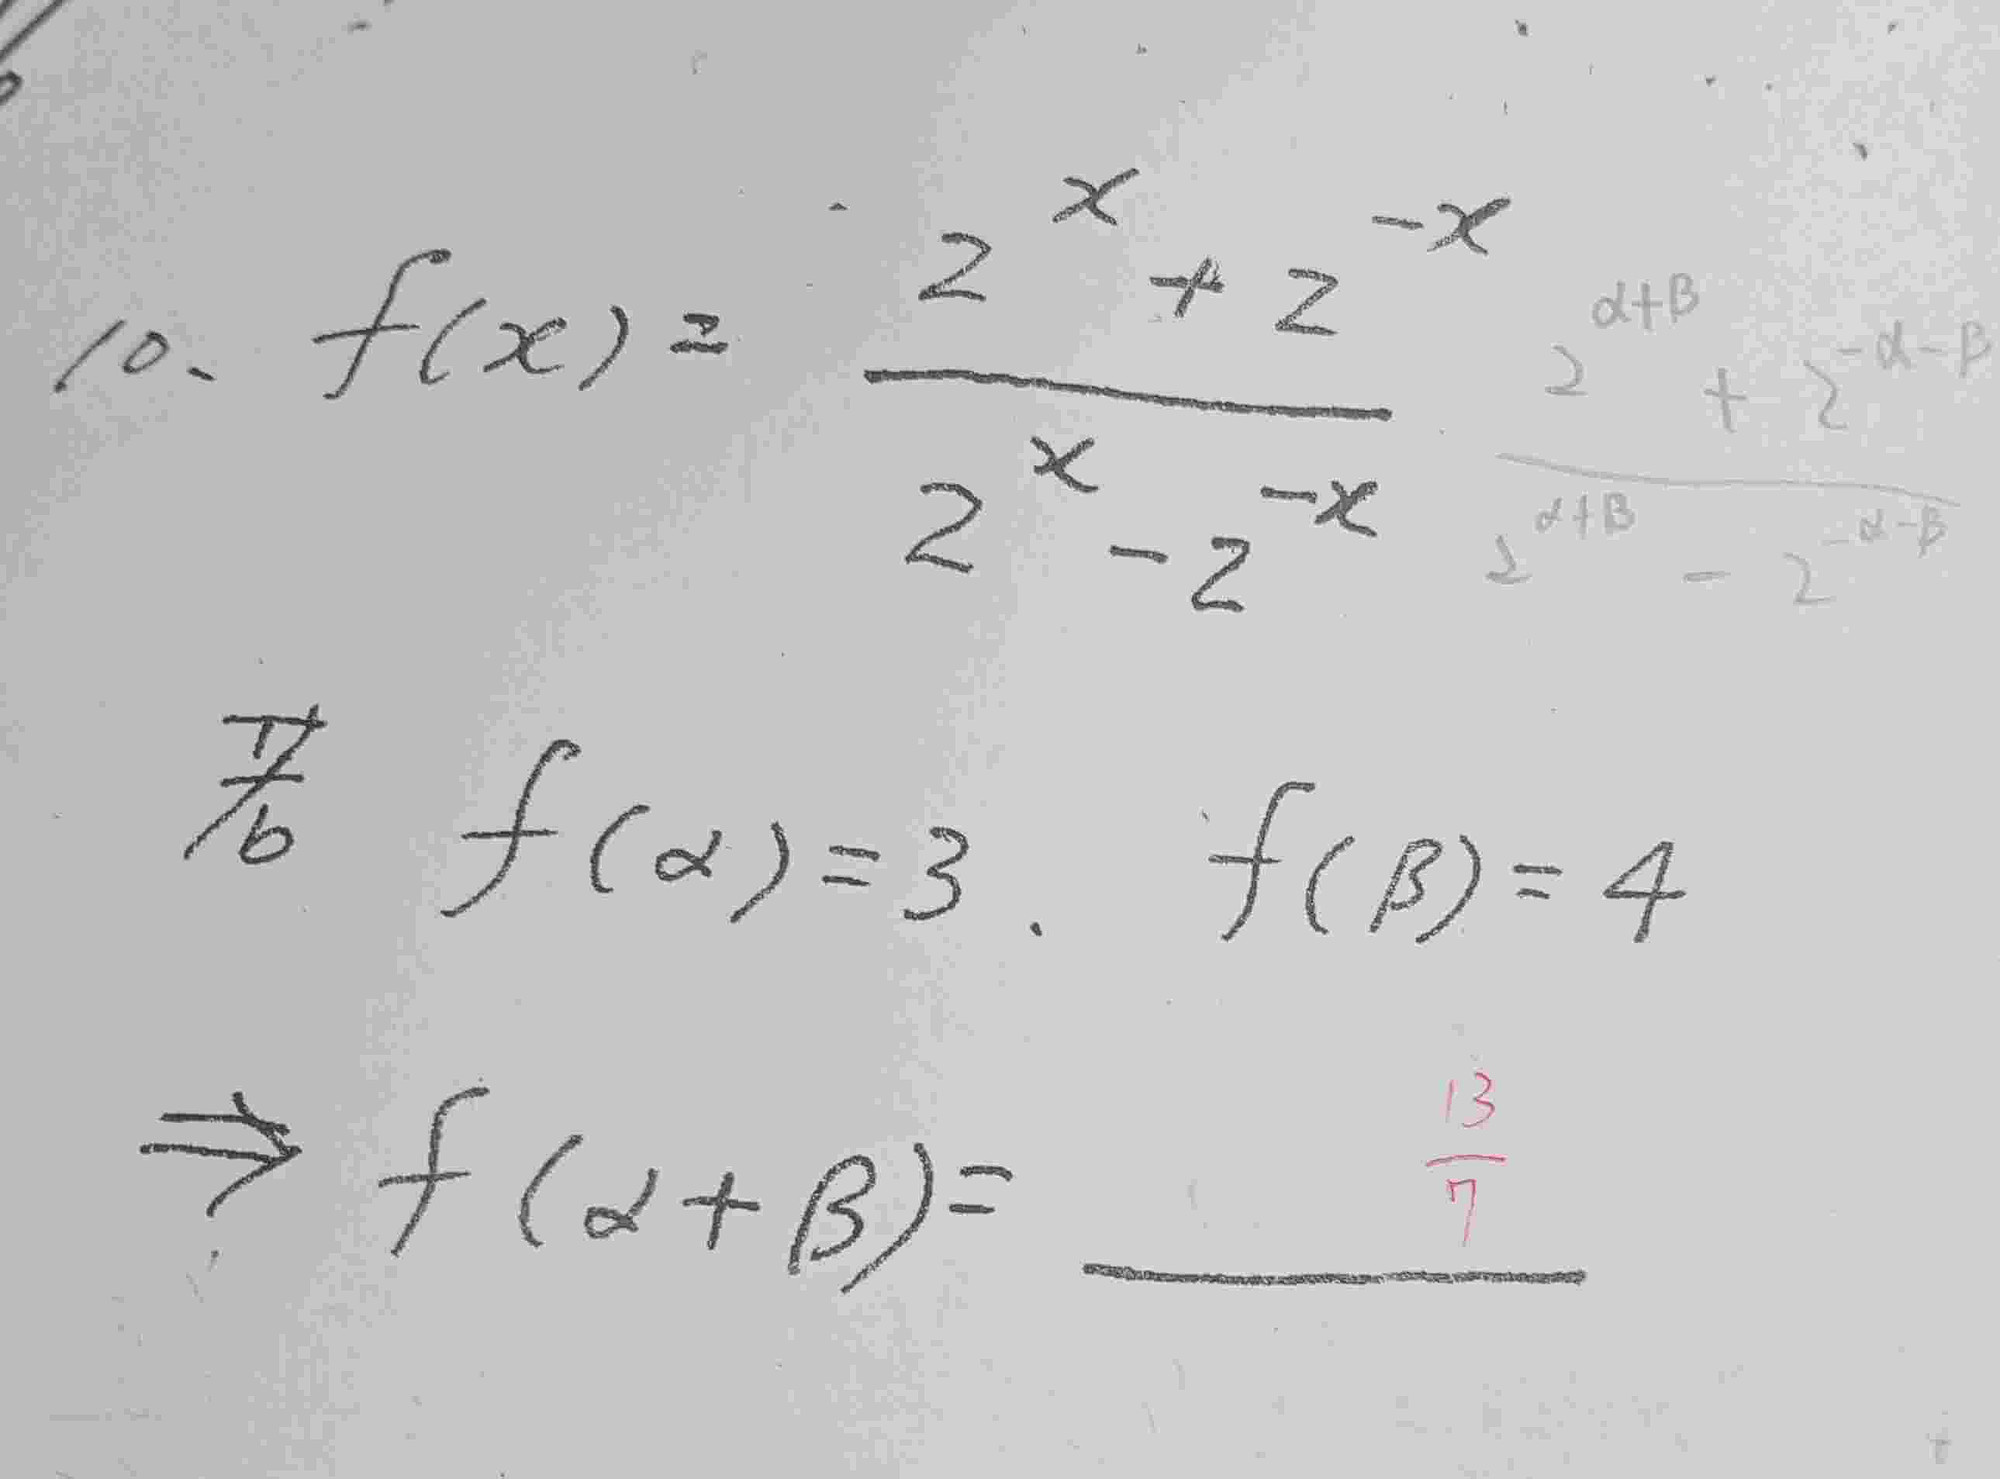 10. f(x) = (2^x + 2^-x) / (2^x - 2^-x)
(2^α+β + 2^-α-β) / (2^α+β - 2^-α-β)
f(α) = 3. f(β) = 4
⇒ f(α+β) = 13/7